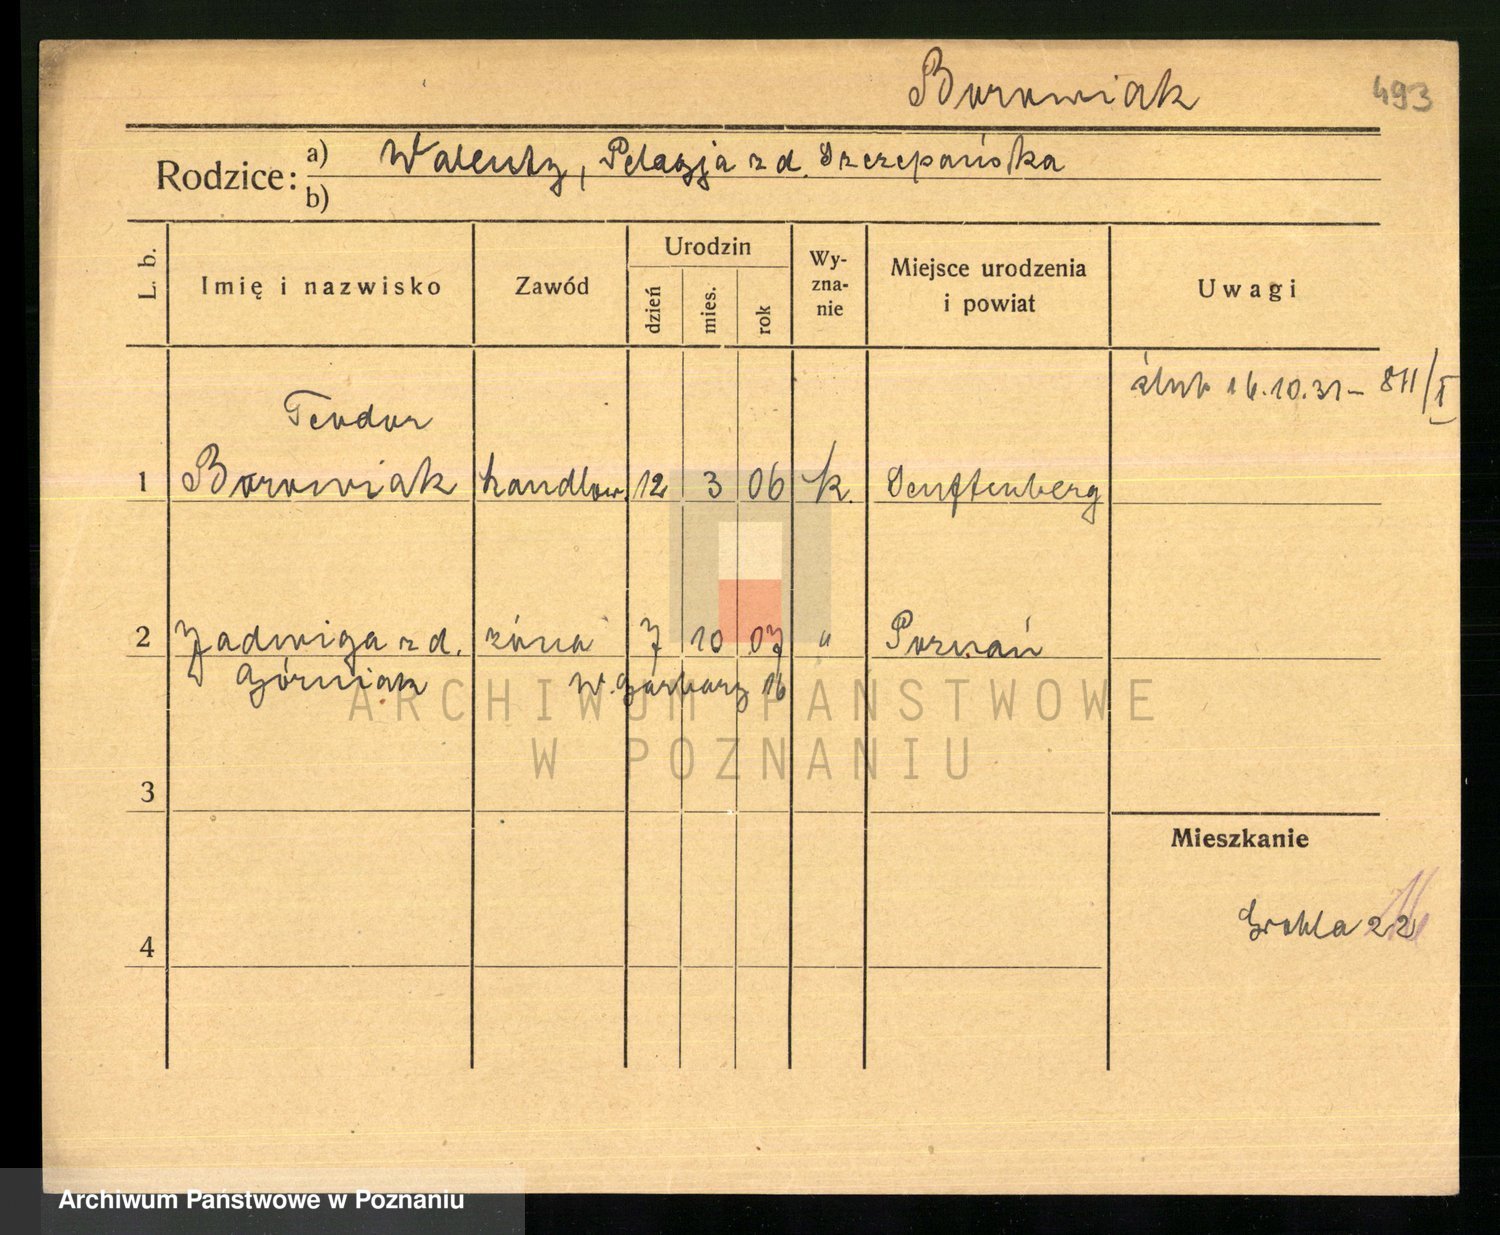 Borowiak 493
Rodzice: a) Walenty, Pelagja z d. Szczepańska
b)
L. b. Imię i nazwisko Zawód Urodzin dzień mies. rok Wy-zna-nie Miejsce urodzenia i powiat Uwagi
ślub 16.10.31 – 811/I
Teodor
1 Borowiak handlow. 12 3 06 k. Senftenberg
2 Jadwiga z d. żona 7 10 07 " Poznań
Górniak W. Garbary 16
ARCHIWUM PAŃSTWOWE
W POZNANIU
3
Mieszkanie
Grobla 22
4
Archiwum Państwowe w Poznaniu